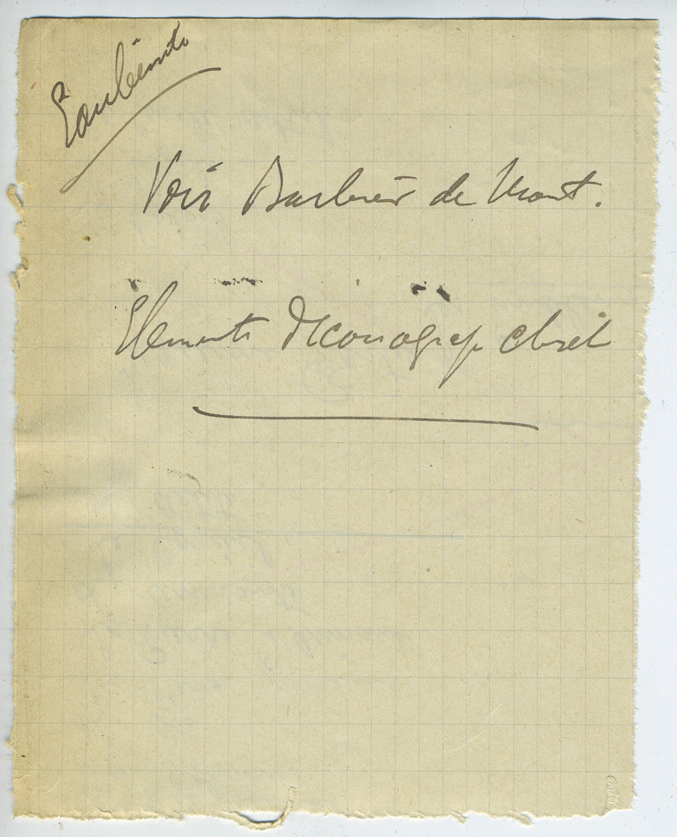 Eau bénite
Voir Barbier de Mont.
Elements d'Iconograp chret